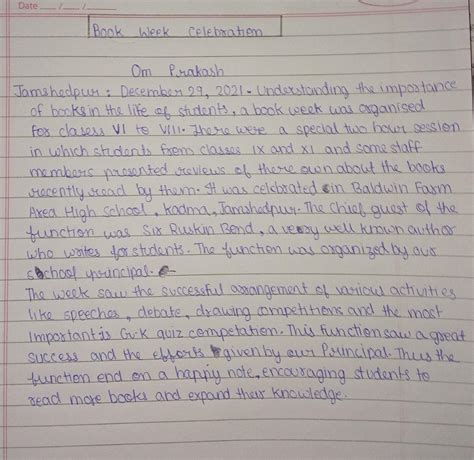 Date
Book Week Celebration
Om Prakash
Jamshedpur : December 29, 2021 - Understanding the importance
of books in the life of students, a book week was organised
for classes VI to VIII. There were a special two hour session
in which students from classes IX and XI and some staff
members presented reviews of there own about the books
recently read by them. It was celebrated in Baldwin Farm
Area High School, Kadma, Jamshedpur. The chief guest of the
function was Sir Ruskin Bond, a very well known author
who writes for students. The function was organized by our
school principal.
The week saw the successful arrangement of various activities
like speeches, debate, drawing competitions and the most
important is G.K quiz competation. This function saw a great
success and the efforts given by our Principal. Thus the
function end on a happy note, encouraging students to
read more books and expand their knowledge.